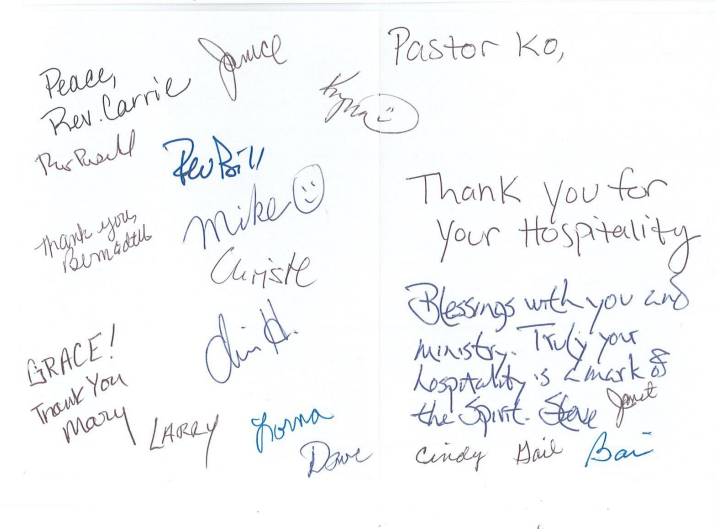 Peace,
Rev. Carrie
Janice
Rev Russell
Rev Bill
Thank you,
Bernadette
Mike
Christe
GRACE!
Thank You
Mary
LARRY
Lorna
Dave
Pastor Ko,
Thank you for
your Hospitality
Blessings with you and
ministry. Truly your
hospitality is a mark of
the Spirit. Steve Janet
Cindy Gail